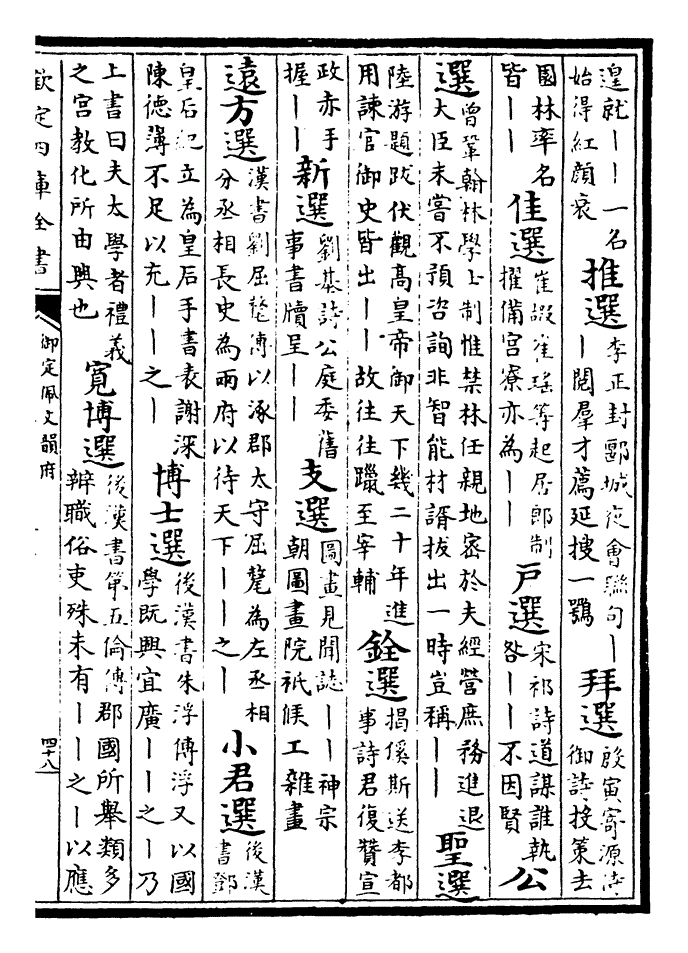 遑就——一名
始得紅顏衰
推選
李正封郾城夜會聯句—
—閱羣才薦延搜一鶚
拜選
殷寅寄源洧
御詩授策去
國林率名
皆——
佳選
崔嘏崔瑤等起居郎制
擢備宮寮亦為——
戶選
宋祁詩道謀誰執
咎——不因賢
公
選
曾鞏翰林學士制惟禁林任親地密於夫經營庶務進退
大臣未嘗不預咨詢非智能材諝拔出一時豈稱——
聖選
陸游題跋伏觀高皇帝御天下幾二十年進
用諫官御史皆出——故往往躐至宰輔
銓選
揭傒斯送李都
事詩君復贊宣
政赤手
握——
新選
劉基詩公庭委舊
事書牘呈——
支選
圖畫見聞誌——神宗
朝圖畫院祇候工雜畫
遠方選
漢書劉屈氂傳以涿郡太守屈氂為左丞相
分丞相長史為兩府以待天下——之—
小君選
後漢
書鄧
皇后紀立為皇后手書表謝深
陳德薄不足以充——之—
博士選
後漢書朱浮傳浮又以國
學既興宜廣——之—乃
上書曰夫太學者禮義
之宮教化所由興也
寬博選
後漢書第五倫傳郡國所舉類多
辨職俗吏殊未有——之—以應
欽定四庫全書
御定佩文韻府
四十八